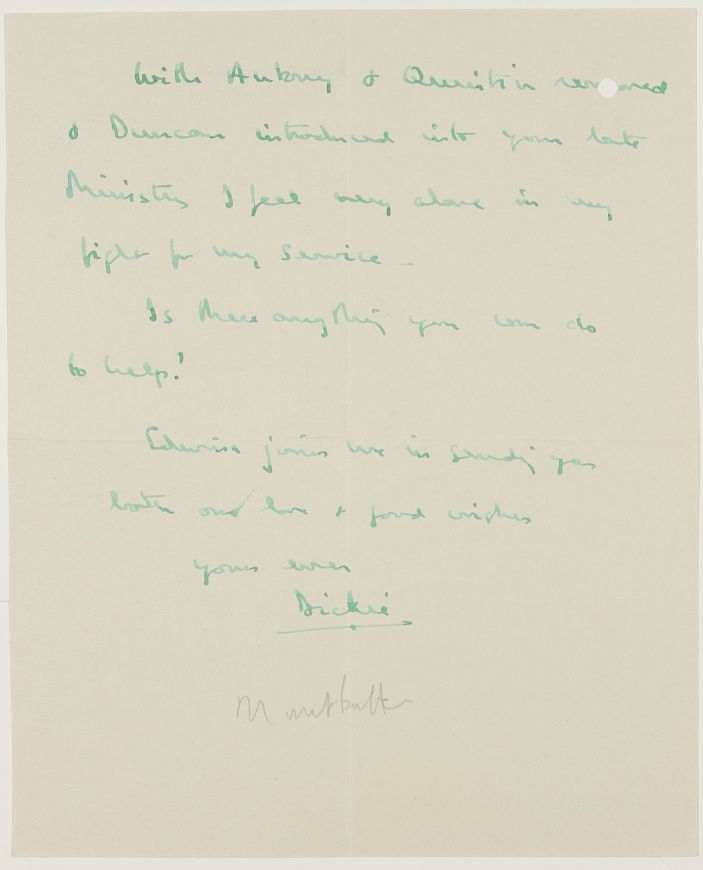 With Antony & Quintin removed
& Duncan introduced into your late
Ministry I feel very alone in my
fight for my Service –
Is there anything you can do
to help?
Edwina joins me in sending you
both our love & good wishes
yours ever
Dickie
Mountbatten